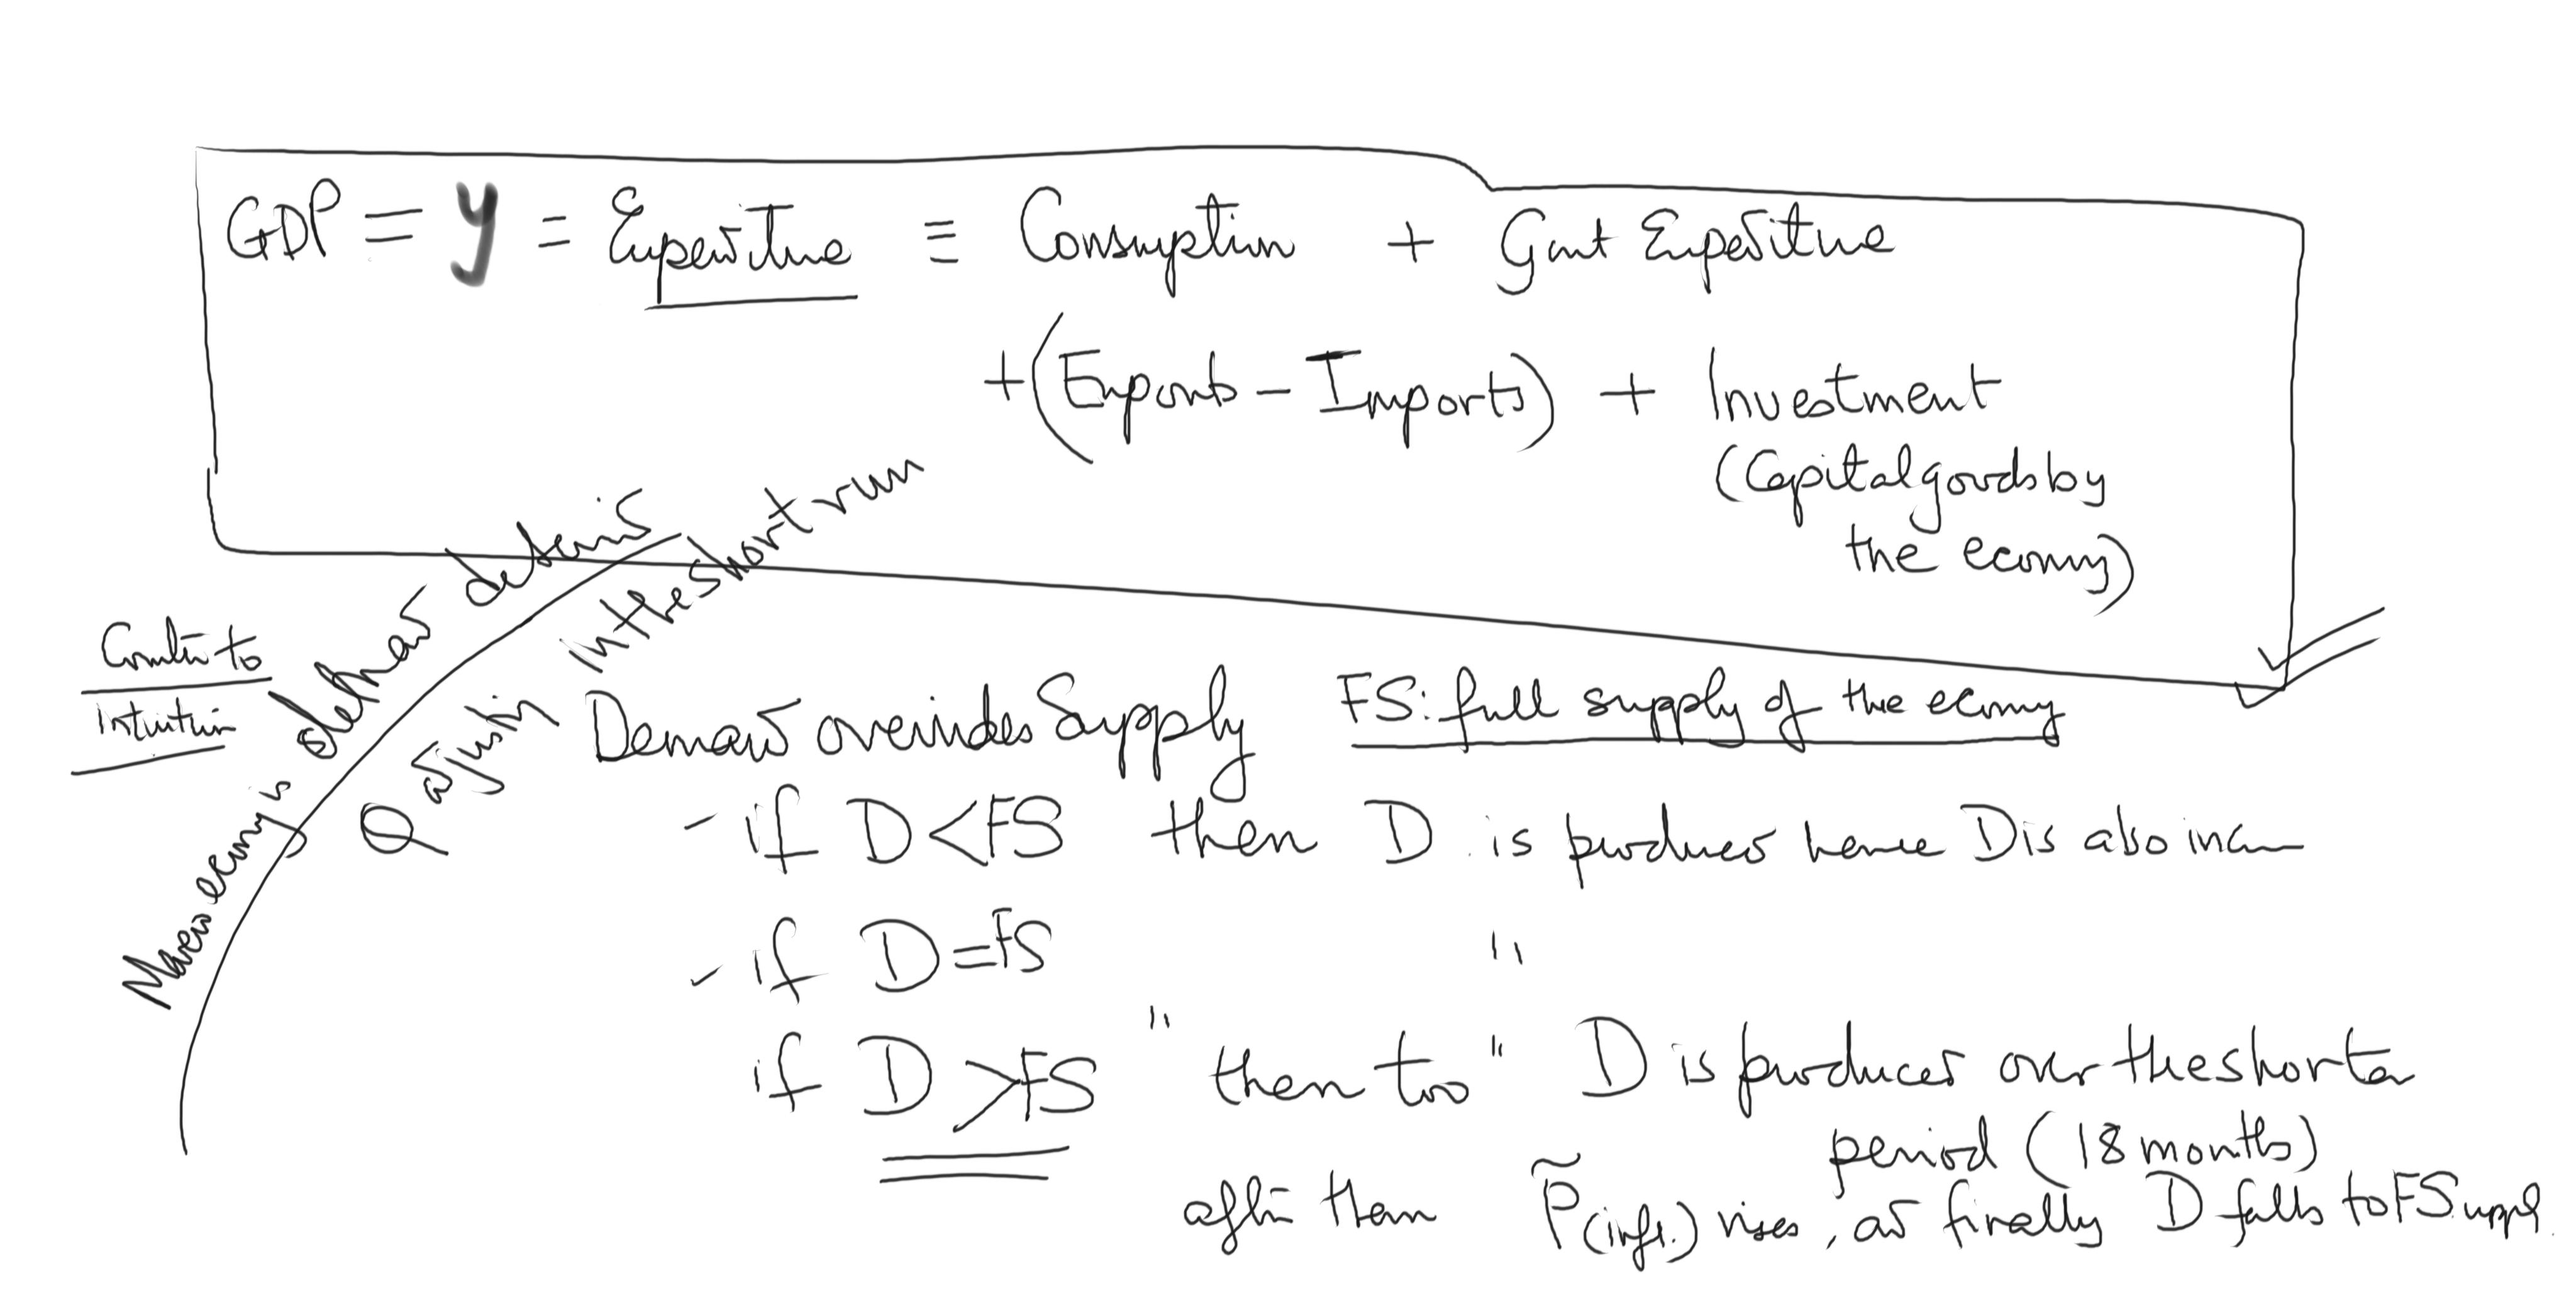 GDP = y = Expenditure ≡ Consumption + Govt Expenditure
+ (Exports - Imports) + Investment
(Capital goods by
the economy)
Counter to
intuition
Macro economy is demand determined
Q adjusting in the short run
Demand overrides Supply FS: full supply of the economy
- if D < FS then D is produced hence D is also
- if D = FS "
if D > FS " then too " D is produced over the shorter
period (18 months)
after then P̃ (infl.) rises, and finally D falls to FSuppl.